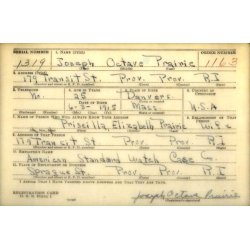 SERIAL NUMBER 1. NAME (Print) ORDER NUMBER
1319 Joseph Octave Prairie 1163
2. ADDRESS (Print)
179 Transit St. Prov. Prov. R.I
3. TELEPHONE 4. AGE IN YEARS 5. PLACE OF BIRTH 6. COUNTRY OF CITIZENSHIP
No. 25 Danvers
DATE OF BIRTH
1915 Mass. U.S.A
7. NAME OF PERSON WHO WILL ALWAYS KNOW YOUR ADDRESS 8. RELATIONSHIP OF THAT PERSON
Priscilla Elizabeth Prairie Wife
9. ADDRESS OF THAT PERSON
179 Transit St. Prov Prov R.I
10. EMPLOYER'S NAME
American Standard Watch Case Co.
11. PLACE OF EMPLOYMENT OR BUSINESS
Sprague St. Prov Prov R.I
I AFFIRM THAT I HAVE VERIFIED ABOVE ANSWERS AND THAT THEY ARE TRUE.
REGISTRATION CARD
Joseph Octave Prairie